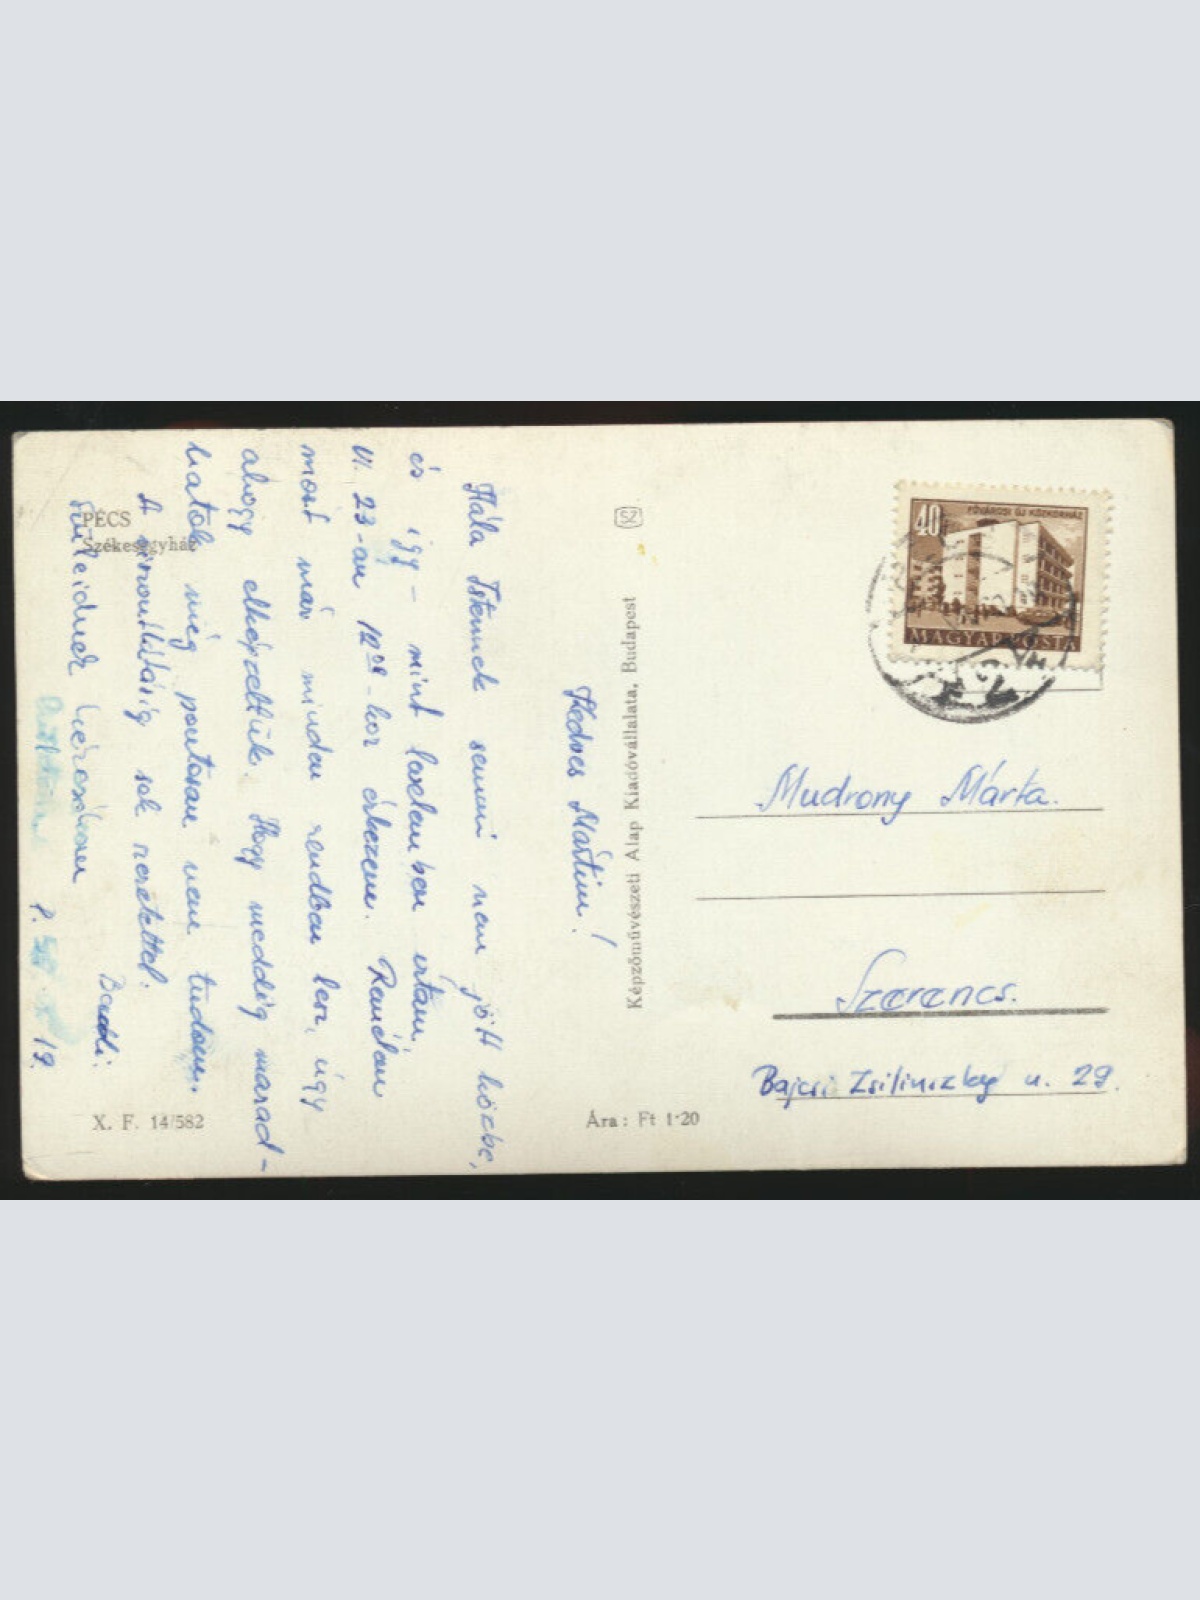 PÉCS
Székesegyház
Kedves Mártim!
Hála Istennek semmi nem jött közbe,
és így - mint levelemben írtam
VI. 23-án 12⁰⁰-kor érkezem. Remélem
most már minden rendben lesz, úgy
ahogy elképzeltük. Hogy meddig marad-
hatok még pontosan nem tudom.
A viszontlátásig sok szeretettel.
Szüleidnek kézcsókom
Bandi.
P. 19.
X. F. 14/582
Képzőművészeti Alap Kiadóvállalata, Budapest
SZ
Ára: Ft 1·20
40
FŐVÁROSI ÚJ KÖZKÓRHÁZ
MAGYAR POSTA
Mudrony Márta.
Szerencs.
Bajcsi Zsilinszky u. 29.